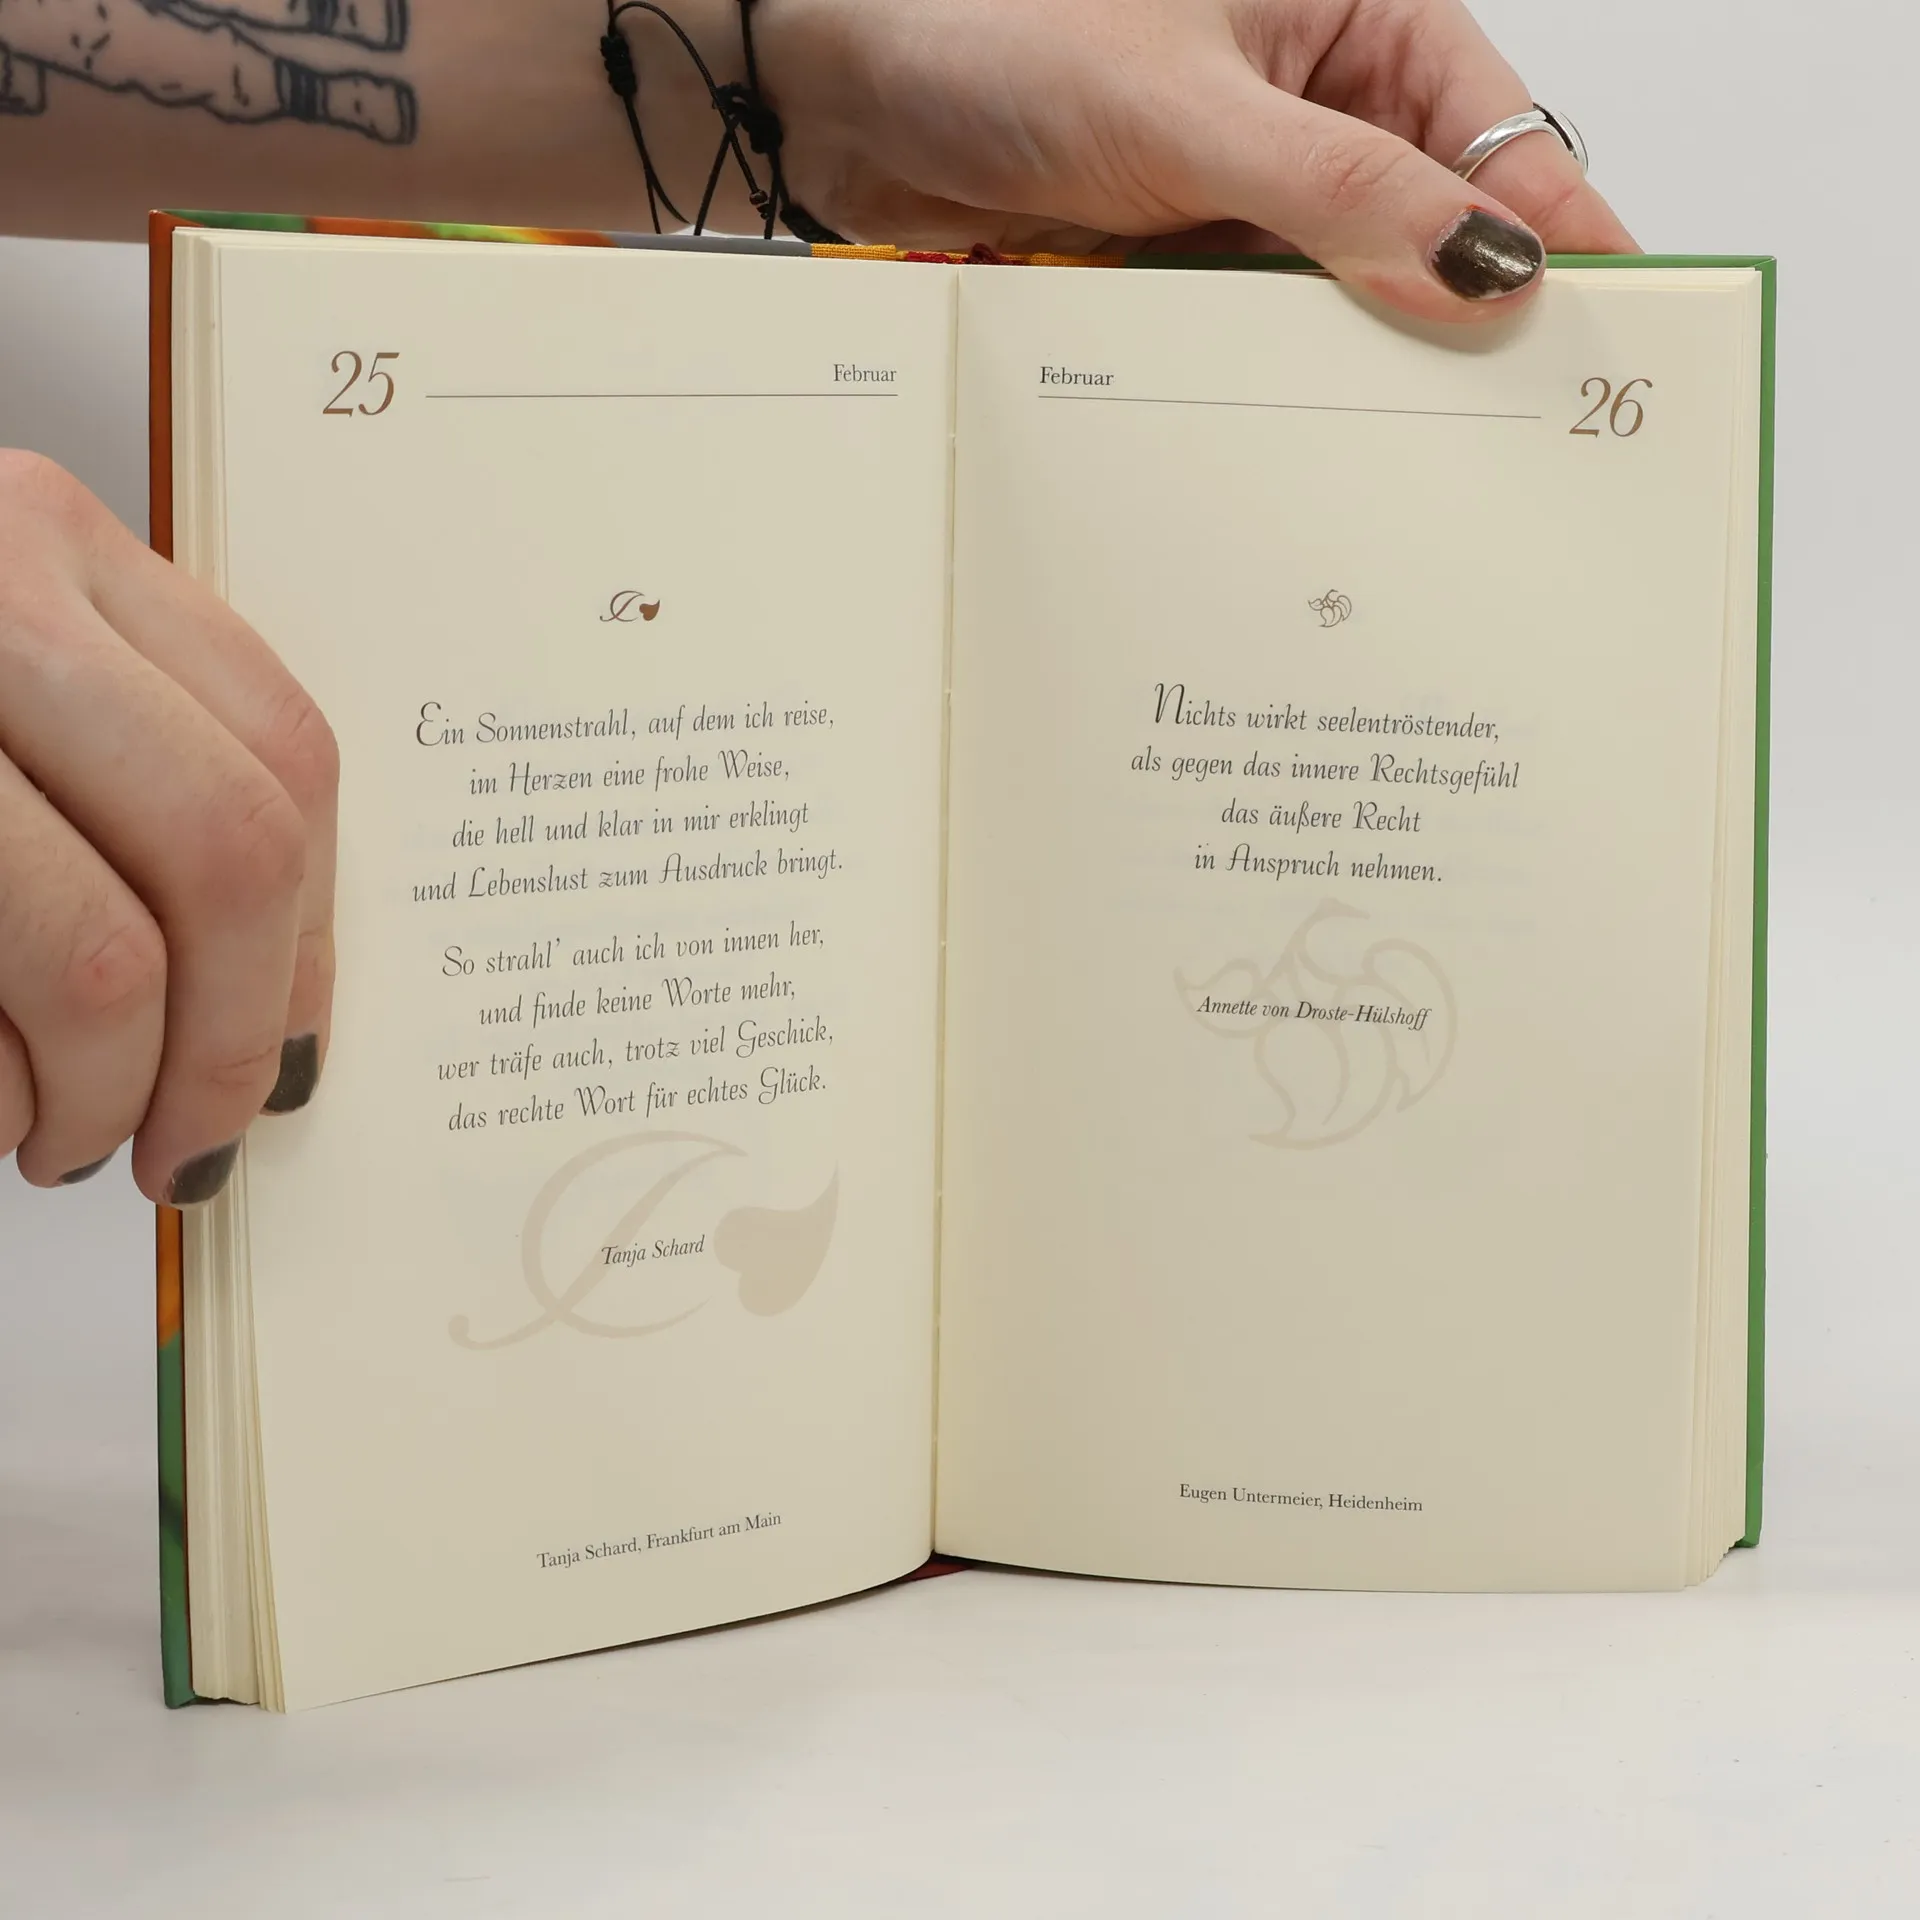 25
Februar
Ein Sonnenstrahl, auf dem ich reise,
im Herzen eine frohe Weise,
die hell und klar in mir erklingt
und Lebenslust zum Ausdruck bringt.
So strahl' auch ich von innen her,
und finde keine Worte mehr,
wer träfe auch, trotz viel Geschick,
das rechte Wort für echtes Glück.
Tanja Schard
Tanja Schard, Frankfurt am Main
Februar
26
Nichts wirkt seelentröstender,
als gegen das innere Rechtsgefühl
das äußere Recht
in Anspruch nehmen.
Annette von Droste-Hülshoff
Eugen Untermeier, Heidenheim